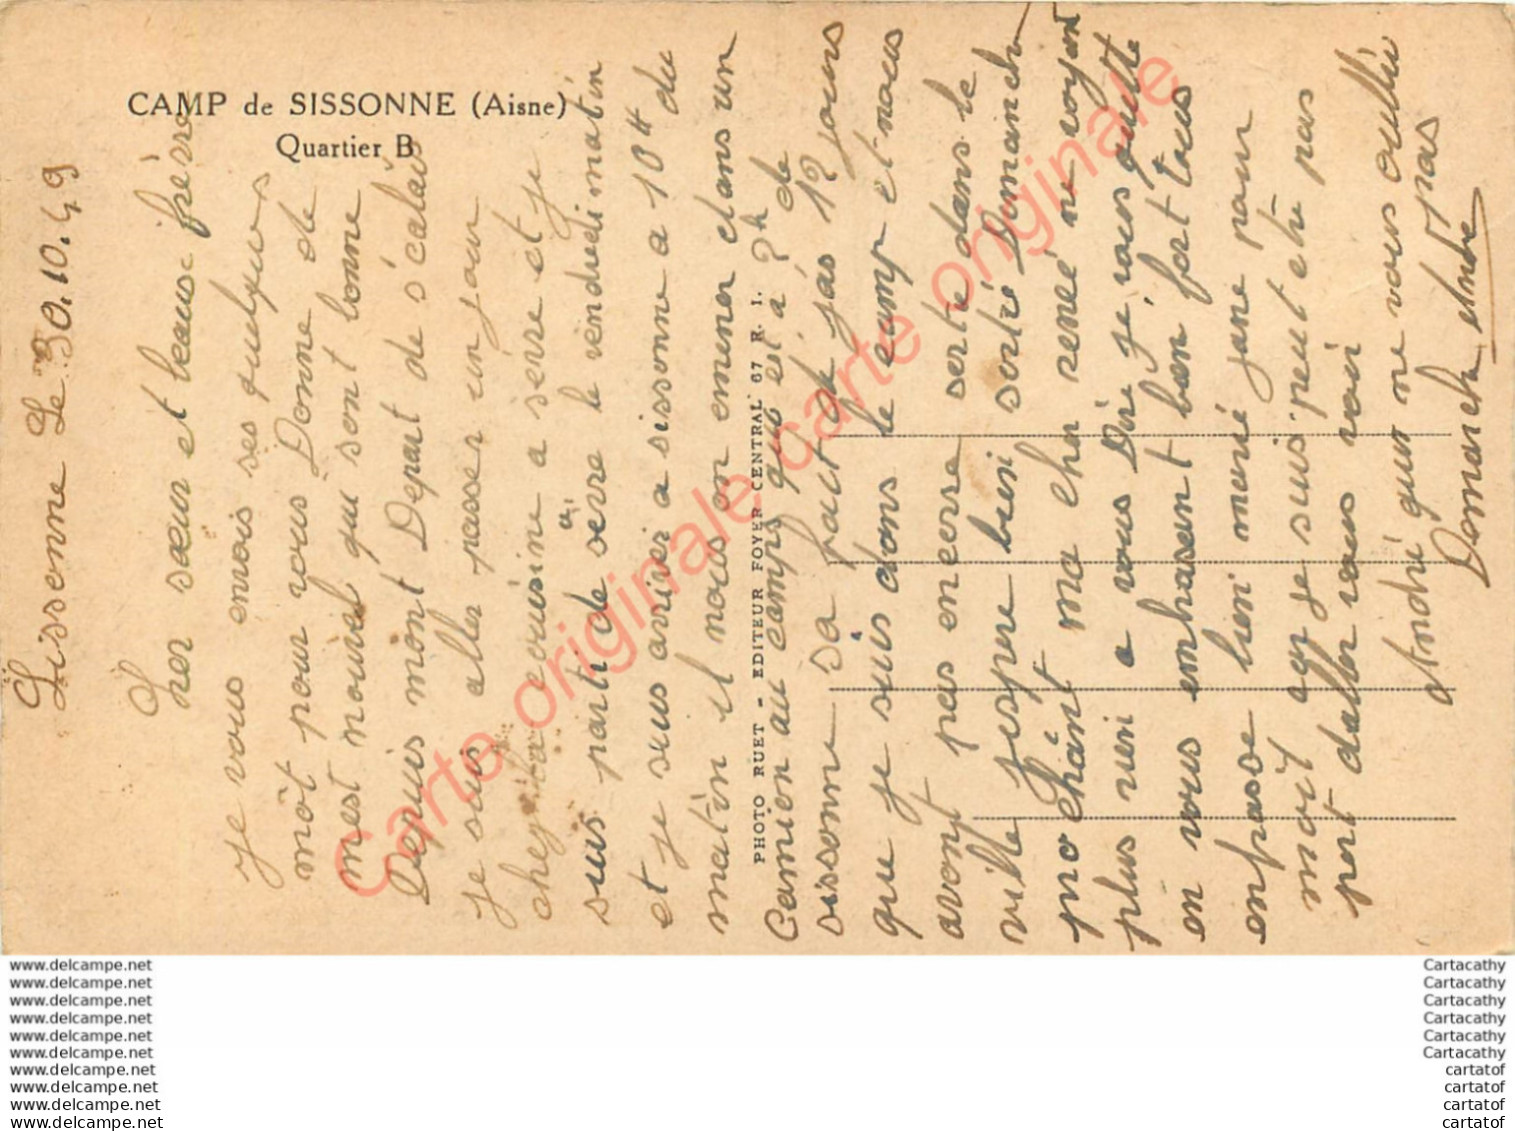 CAMP de SISSONNE (Aisne)
Quartier B
Sissonne Le 30.10.49
Cher sœur et beaux frère
je vous envois ses quelques
môt pour vous Donne de
mest nouvel qui sont bonne
Depuis mont Depart de s'calais
je suis aller passer un jour
chez la cousine a serre et je
suis parti de serre le vendredi matin
et je suis arriver a sissonne a 10H du
matin il nous on emener dans un
Camion au camps qui est a 2h de
sissonne sa fait déjas 12 jours
que je suis dans le camp et nous
avont pas encore sortie dans le
ville jespere bien sortié Domainche
prochaint ma cher renée ne voyent
plus rien a vous Dire je vous quitte
en vous embrasent bien fort tous
enpasse bien merie jane pour
moit car je suis peut etre pas
pert daller vous voir
André qui ne vous oublie pas
Domarche André
PHOTO RUET - EDITEUR FOYER CENTRAL 67 R. I.
Carte originale carte originale
www.delcampe.net
www.delcampe.net
www.delcampe.net
www.delcampe.net
www.delcampe.net
www.delcampe.net
www.delcampe.net
www.delcampe.net
www.delcampe.net
www.delcampe.net
Cartacathy
Cartacathy
Cartacathy
Cartacathy
Cartacathy
Cartacathy
cartatof
cartatof
cartatof
cartatof